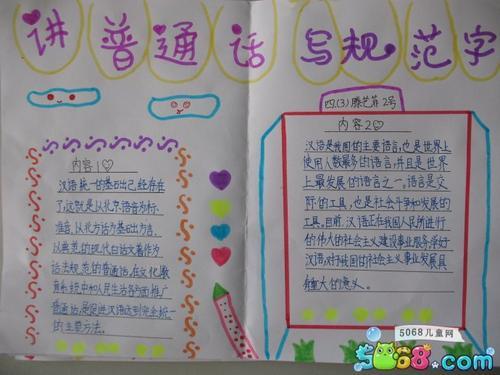 讲普通话 写规范字
内容1
汉语统一的基石出已经存在
了,这就是以北京语音为标
准音,以北方话为基础出方言,
以典范的现代白话文著作为
语法规范的普通话,在文化教
育系统中和人民生活各方面推广
普通话,是促进汉语达到完全统一
的主要方法。
四(3) 滕艺菲 2号
内容2
汉语是我国的主要语言,也是世界上
使用人数最多的语言,并且是世界
上最发展的语言之一。语言是交
际的工具,也是社会斗争和发展的
工具。目前,汉语正在为我国人民所进行
的伟大的社会主义建设事业服务。学好
汉语,对于我国的社会主义事业发展具
有重大的意义。
5068儿童网
5068.com